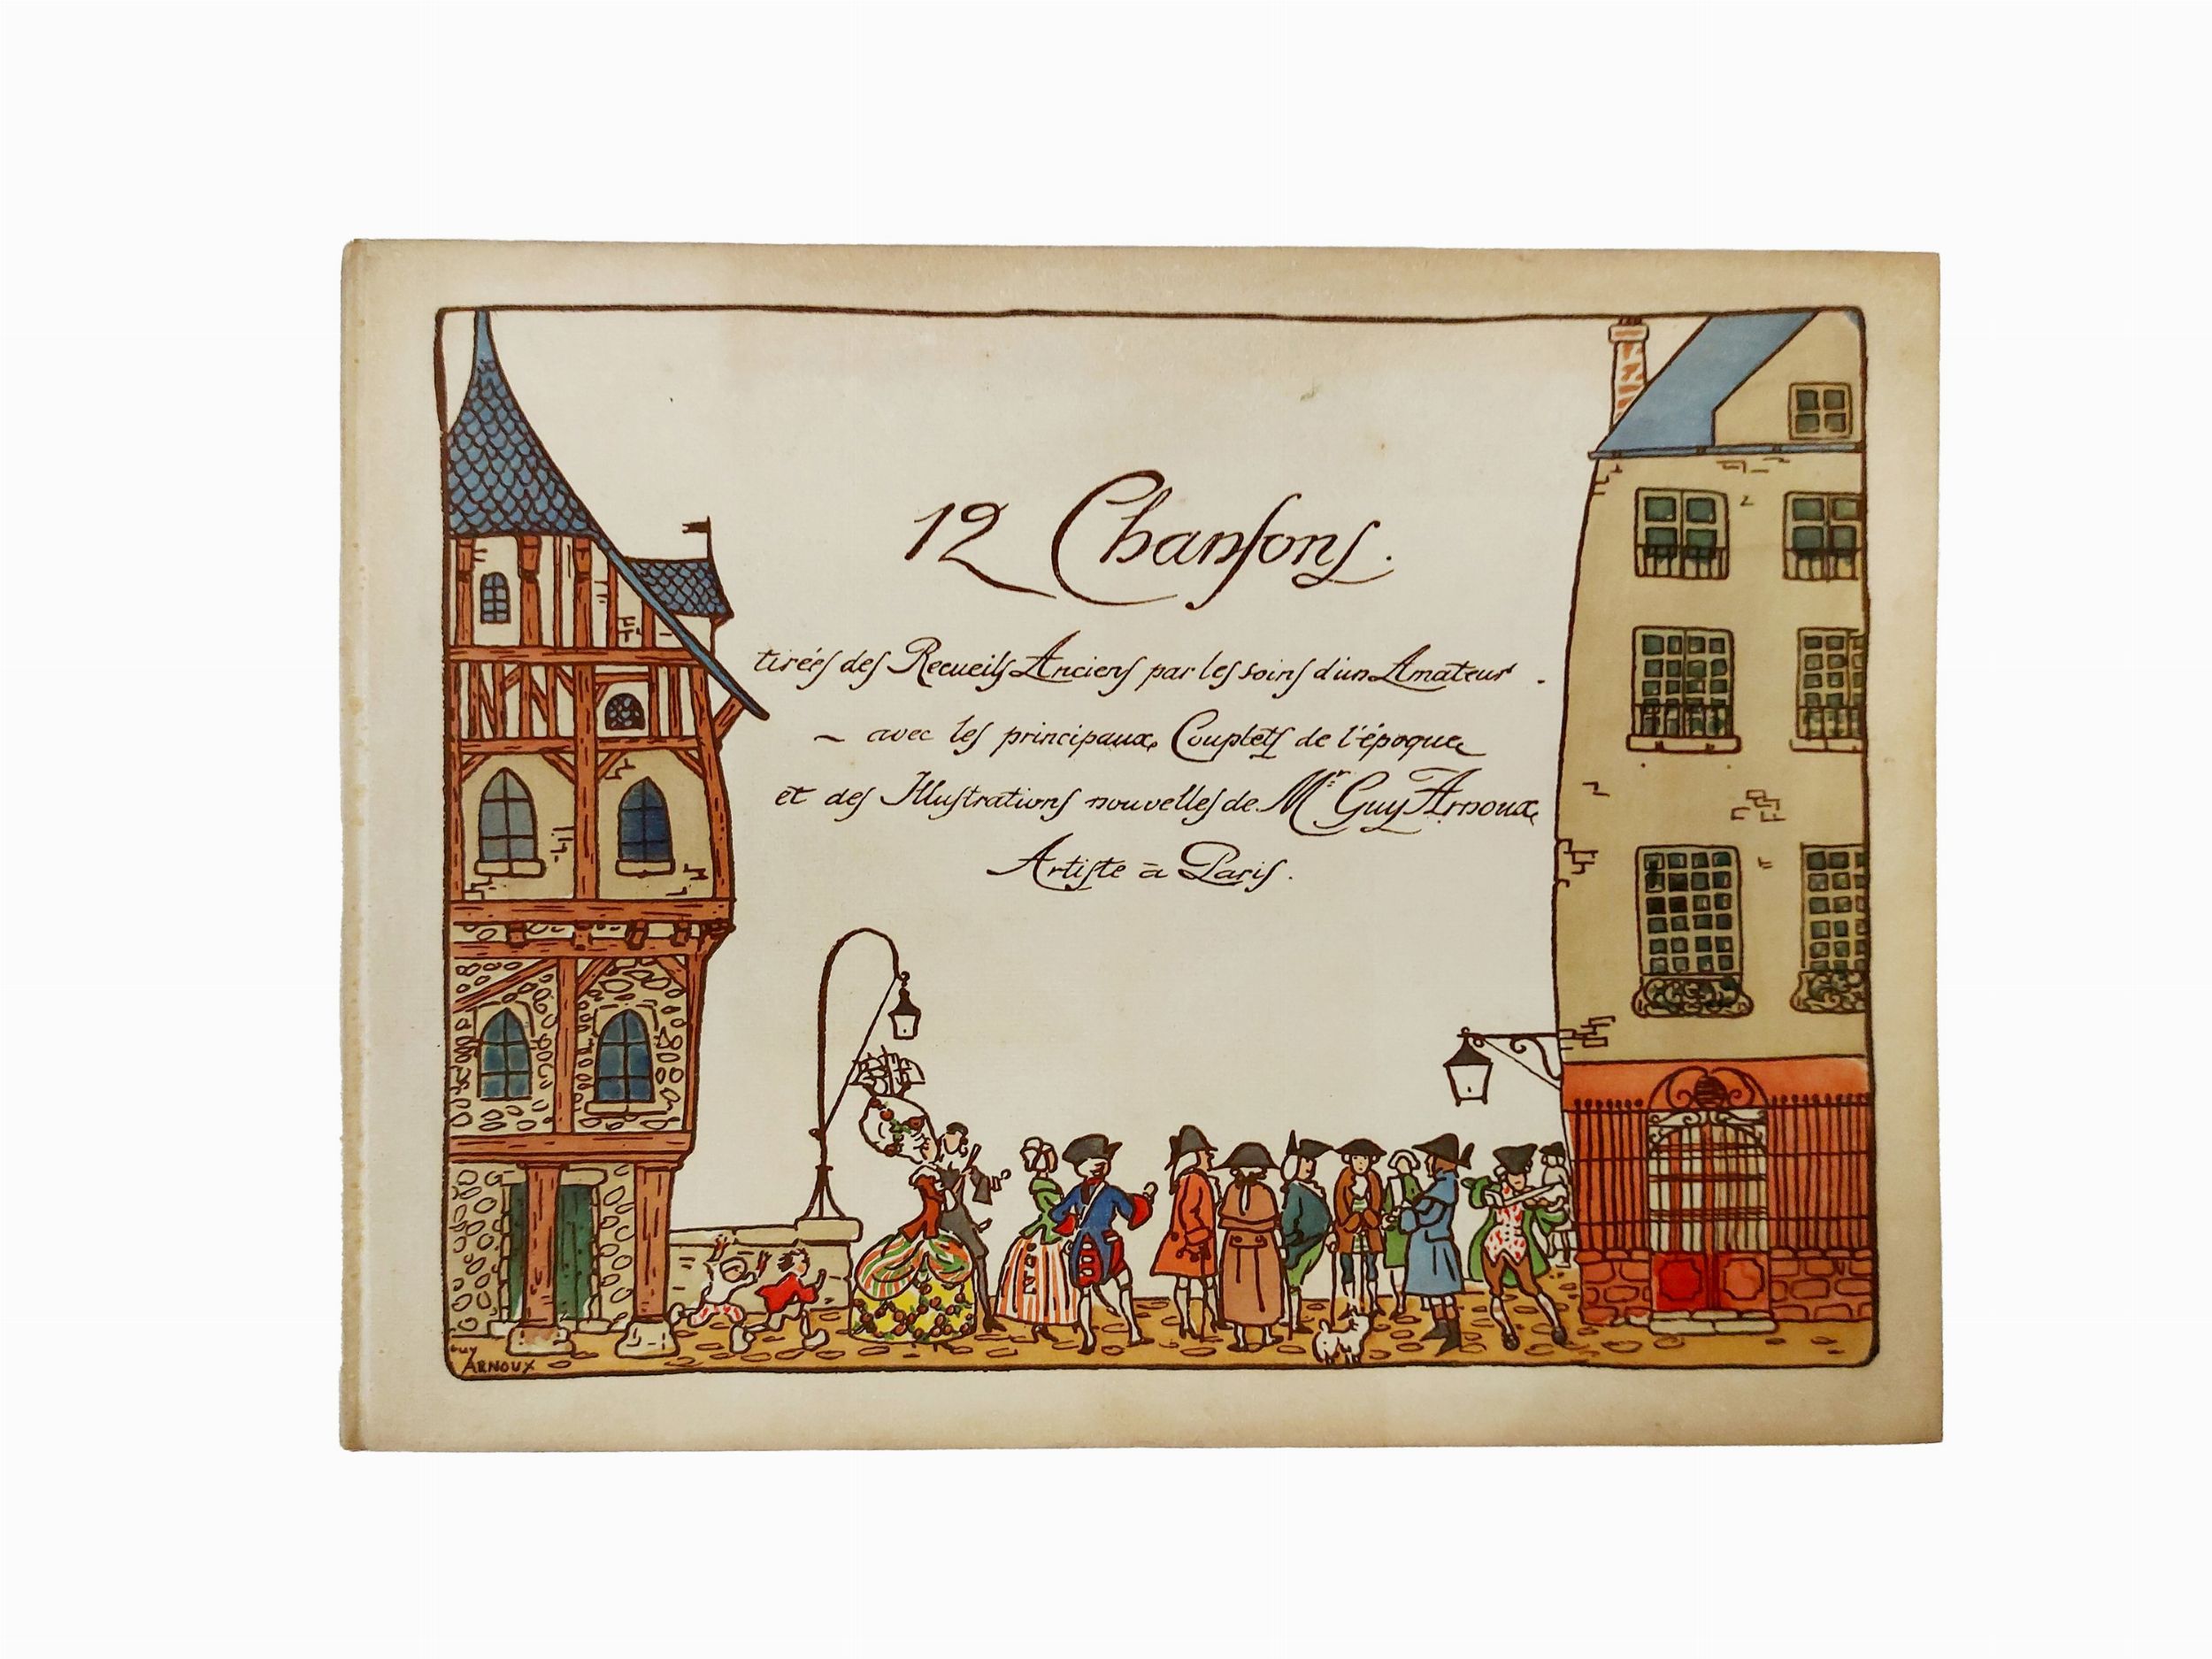 12 Chanſonſ.
tiréeſ deſ Recueilſ Ancienſ par leſ soinſ d'un Amateur.
~ avec leſ principaux Coupletſ de l'époque
et deſ Illuſtrationſ nouvelleſ de Mr Guy Arnoux
Artiſte à Pariſ.
GUY
ARNOUX